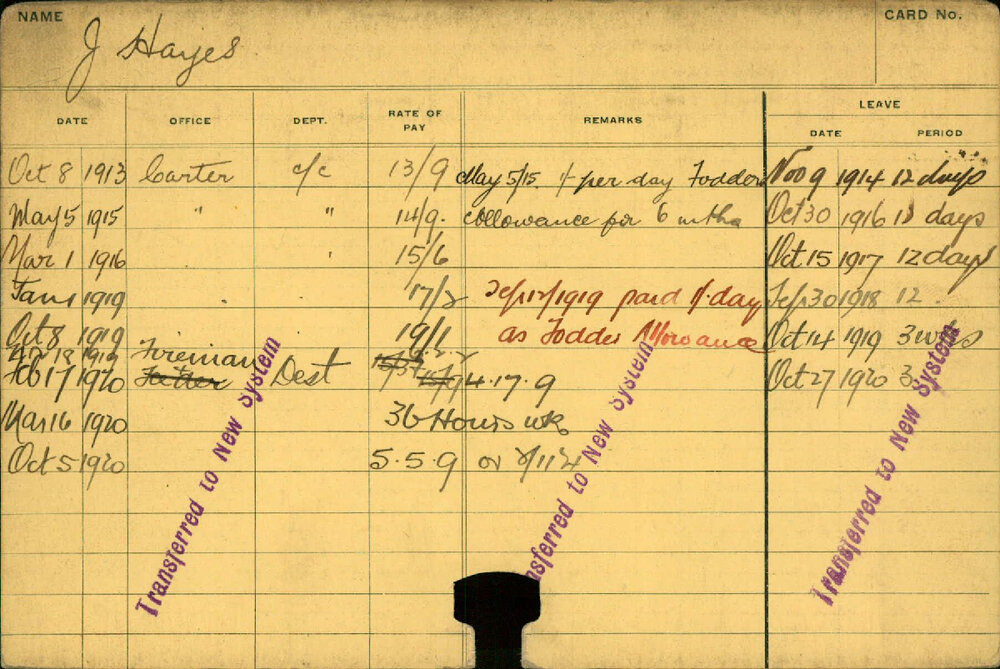 NAME J Hayes CARD No.
DATE OFFICE DEPT. RATE OF PAY REMARKS LEAVE
DATE PERIOD
Oct 8 1913 Carter c/c 13/9 May 5/15. 1/- per day Fodder Nov 9 1914 12 days
May 5 1915 " " 14/9. allowance for 6 mths Oct 30 1916 days
Mar 1 1916 15/6 Oct 15 1917 12 days
Jan 1 1919 17/2 Sep/12/1919 paid 1/- day Sep 30 1918 12
Oct 8 1919 19/1 as Fodder Allowance Oct 14 1919 3
Fireman
Feb 17 1920 Dest 4.17.9 Oct 27 1920 3
Mar 16 1920 36 Hours wk
Oct 5 1920 5.5.9 or
Transferred to New System
nsferred to New System
Transferred to New System